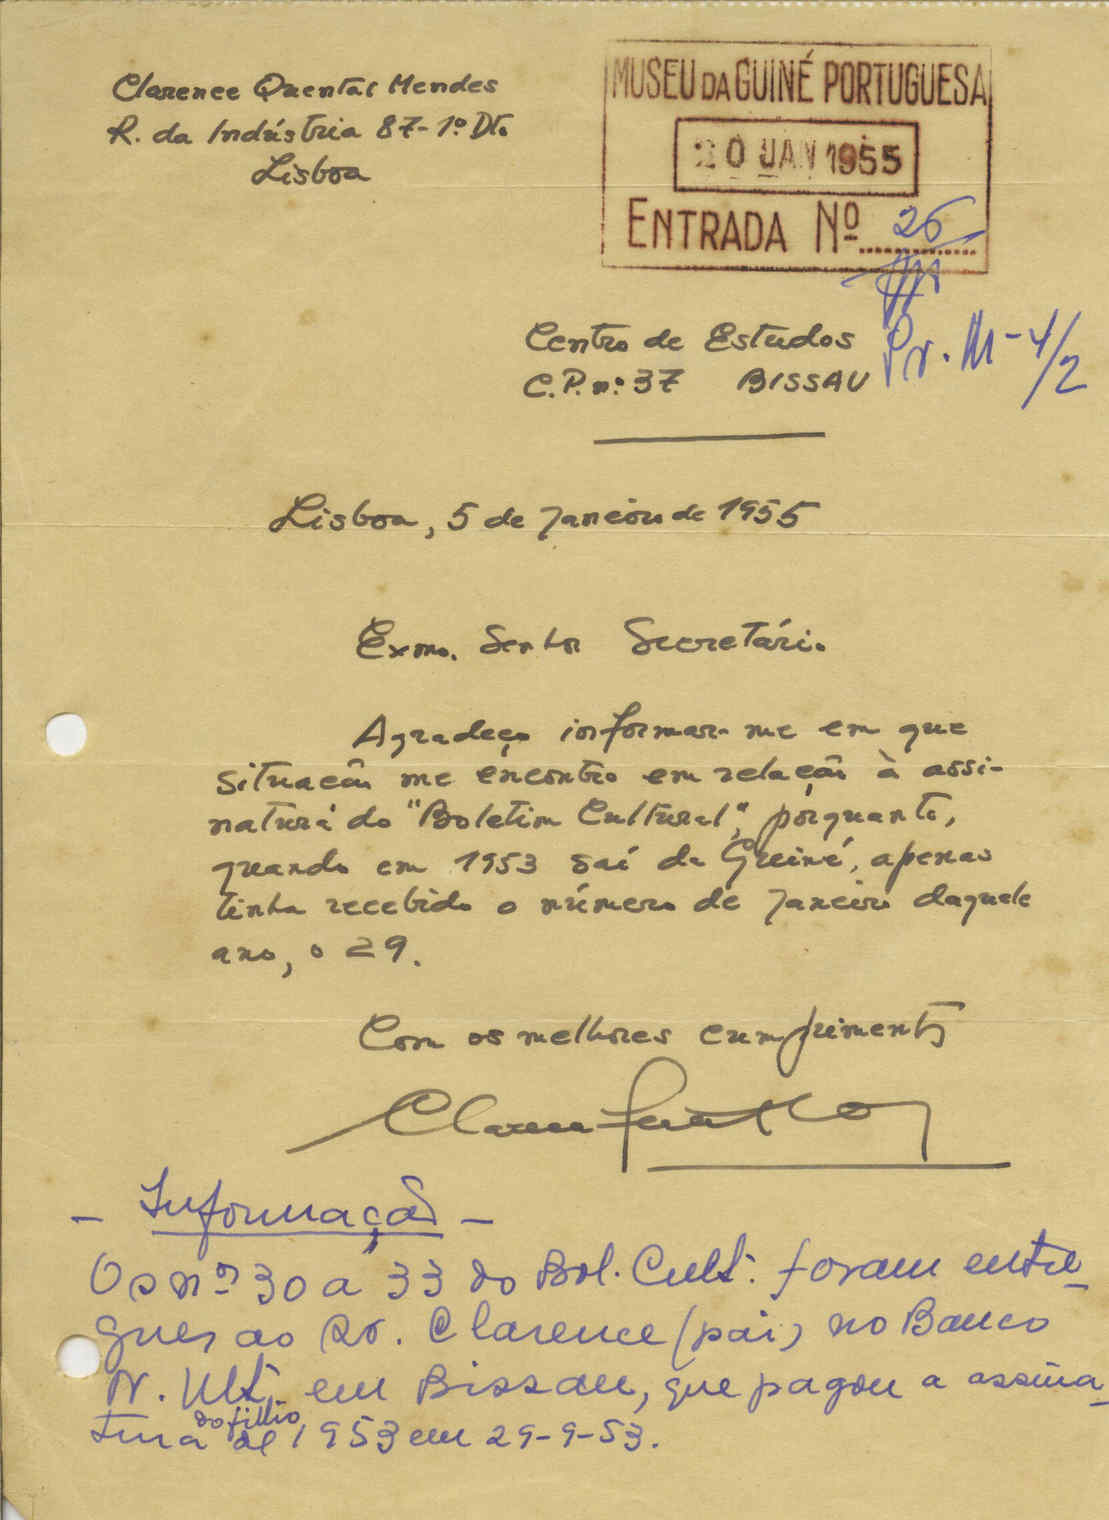 Clarence Quental Mendes
R. da Indústria 87-1º Dt.
Lisboa
MUSEU DA GUINÉ PORTUGUESA
20 JAN 1955
ENTRADA Nº 26
Centro de Estudos
C.P. nº 37 BISSAU
Pr. M-4/2
Lisboa, 5 de Janeiro de 1955
Exmo. Senhor Secretário
Agradeço informar-me em que
situação me encontro em relação à assi-
natura do "Boletim Cultural", porquanto,
quando em 1953 saí da Guiné, apenas
tinha recebido o número de Janeiro daquele
ano, o 29.
Com os melhores cumprimentos
- Informação -
Os nºs 30 a 33 do Bol. Cult. foram entre-
gues ao Sr. Clarence (pai) no Banco
N. Ult. em Bissau, que pagou a assina-
do filho
tura de 1953 em 29-9-53.